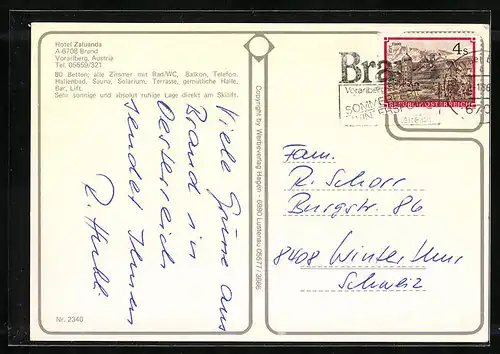 Hotel Zalvanda
A-6708 Brand
Vorarlberg, Austria
Tel. 05559/321
80 Betten; alle Zimmer mit Bad/WC, Balkon, Telefon.
Hallenbad, Sauna, Solarium, Terrasse, gemütliche Halle,
Bar, Lift.
Sehr sonnige und absolut ruhige Lage direkt am Skilift.
Viele Grüsse aus
Brand in
Oesterreich
sendet Ihnen
Nr. 2340
Copyright by Werbeverlag Hagen - 6890 Lustenau 05577/3666
Bra
Vorarlberg
4s
REPUBLIK ÖSTERREICH
Fam.
R. Schorr
Burgstr. 86
8408 Winterthur
Schweiz